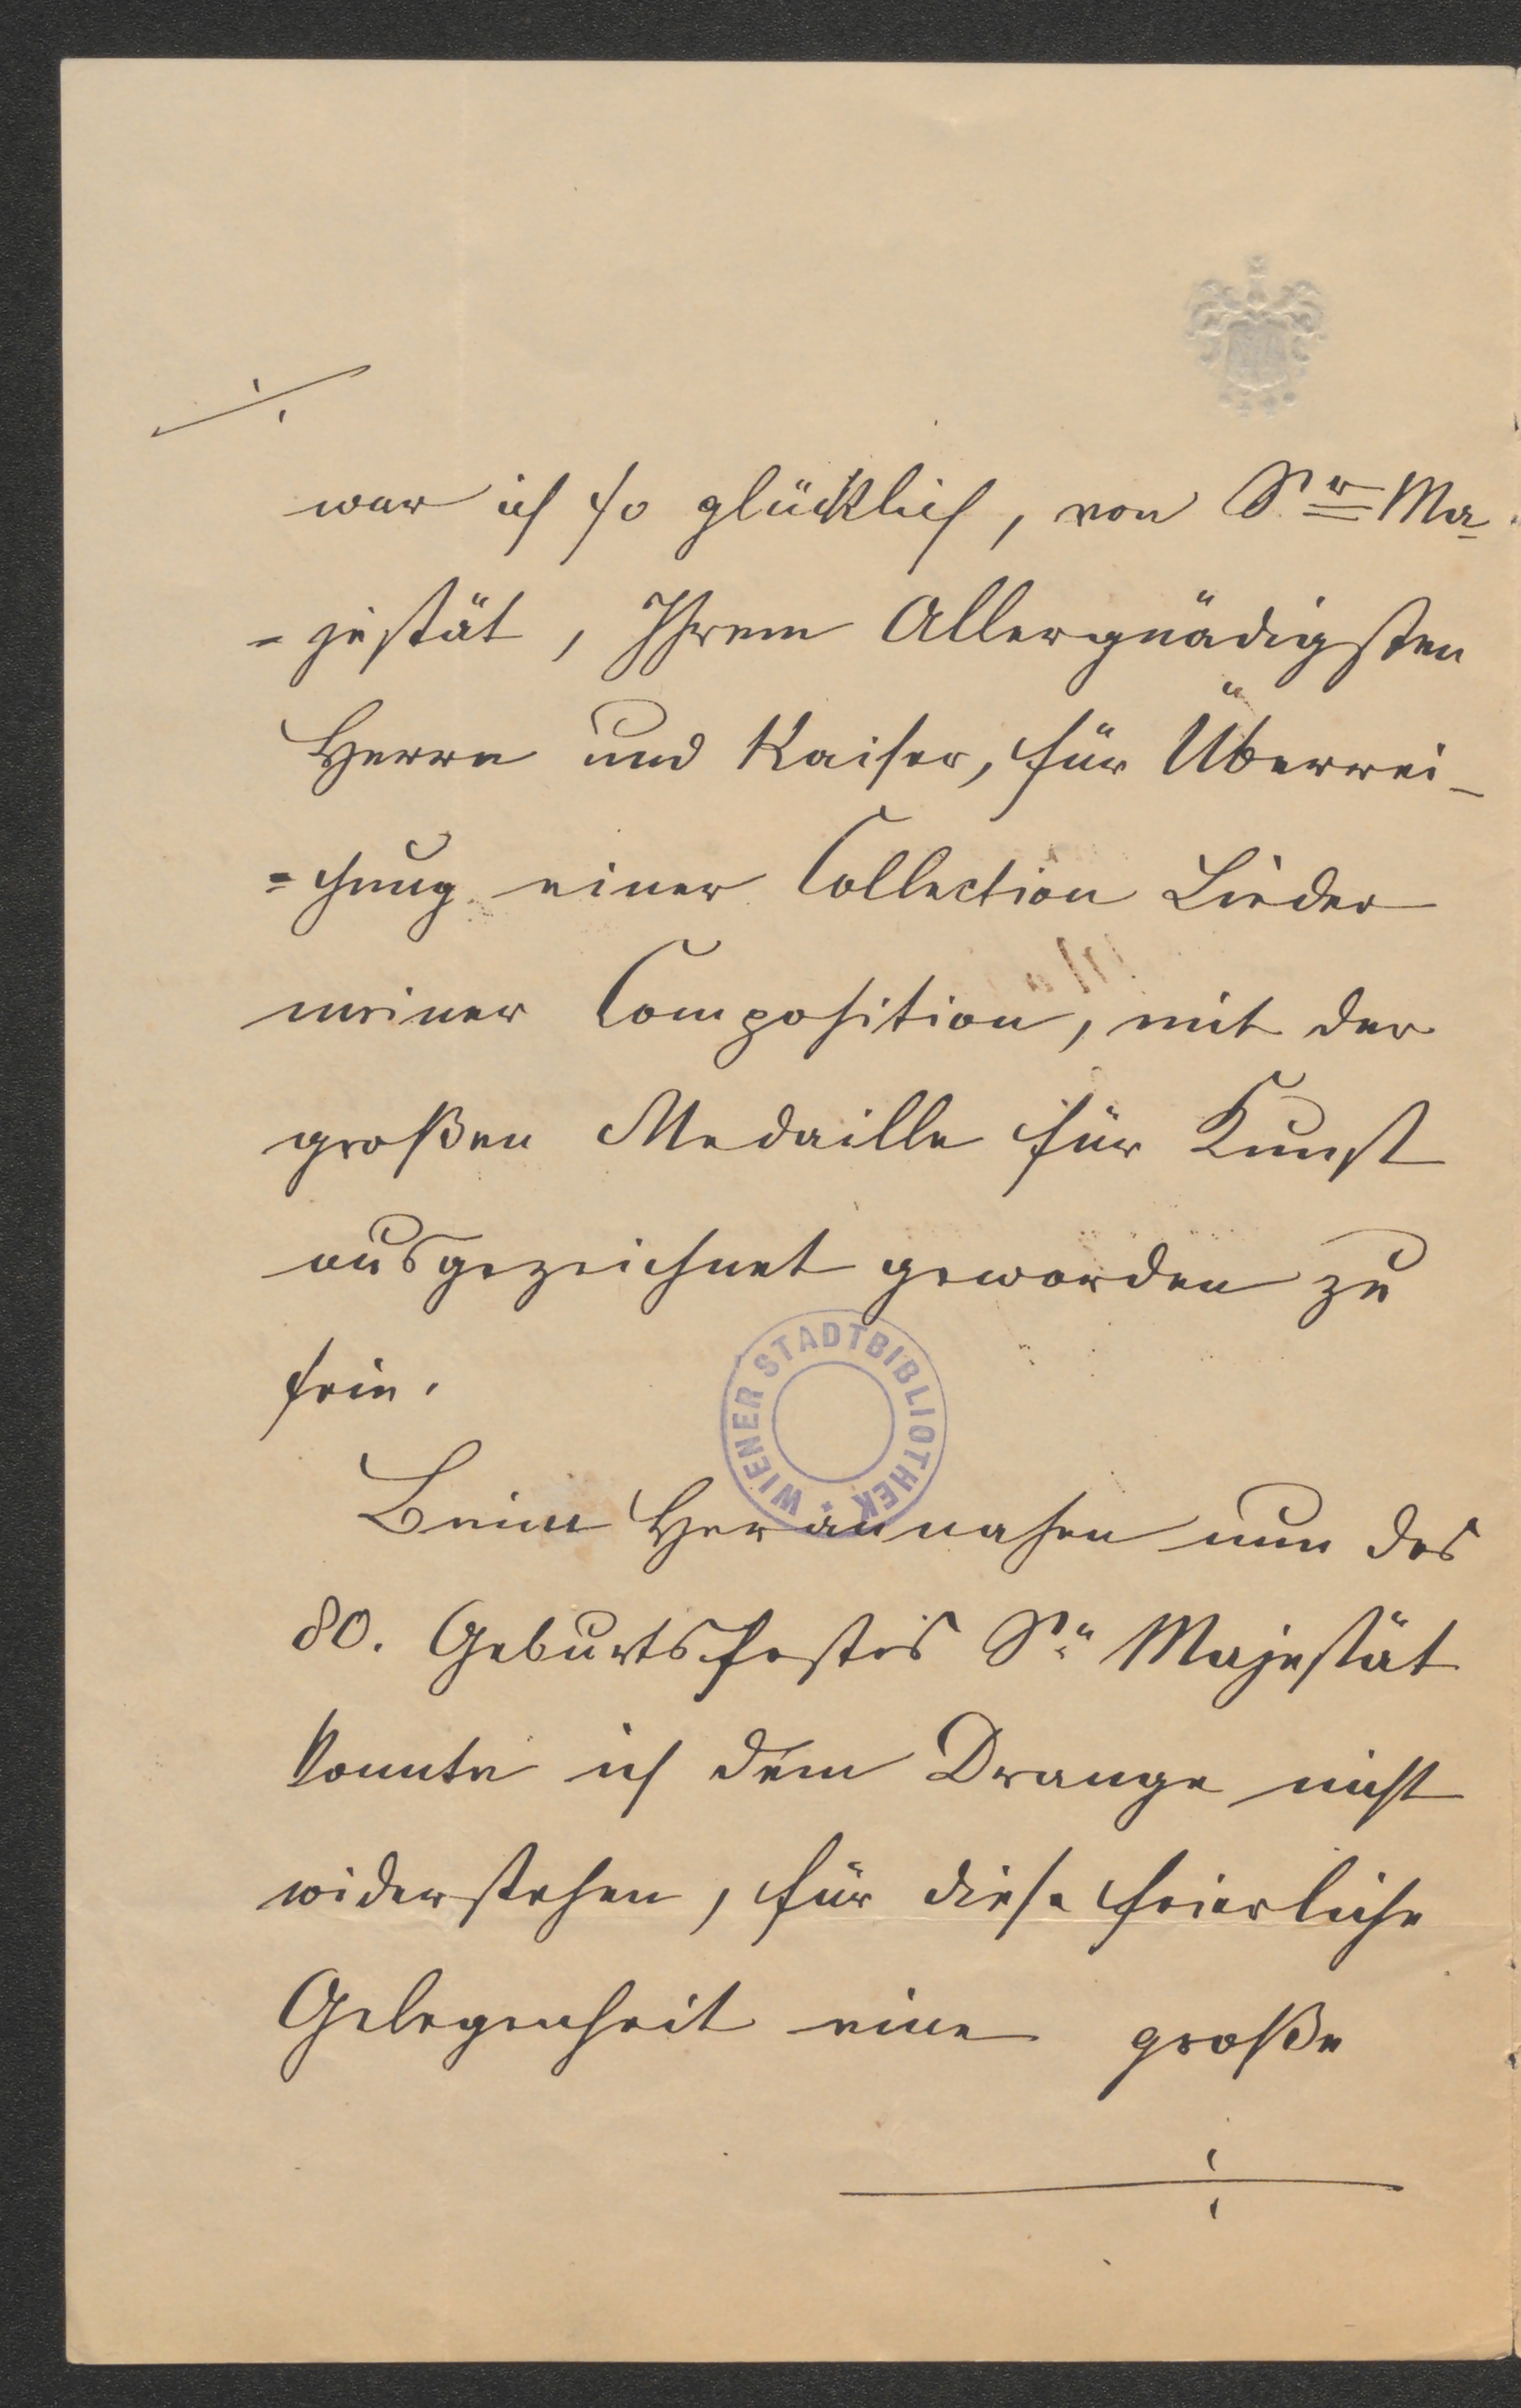 ./.
war ich so glücklich, von Sr Ma-
-jestät, Ihrem Allergnädigsten
Herrn und Kaiser, für Überrei-
=chung einer Collection Lieder
meiner Composition, mit der
großen Medaille für Kunst
ausgezeichnet geworden zu
sein.
WIENER STADTBIBLIOTHEK *
Beim Herannahen nun des
80. Geburtsfestes Sr Majestät
konnte ich dem Drange nicht
widerstehen, für diese feierliche
Gelegenheit eine große
./.